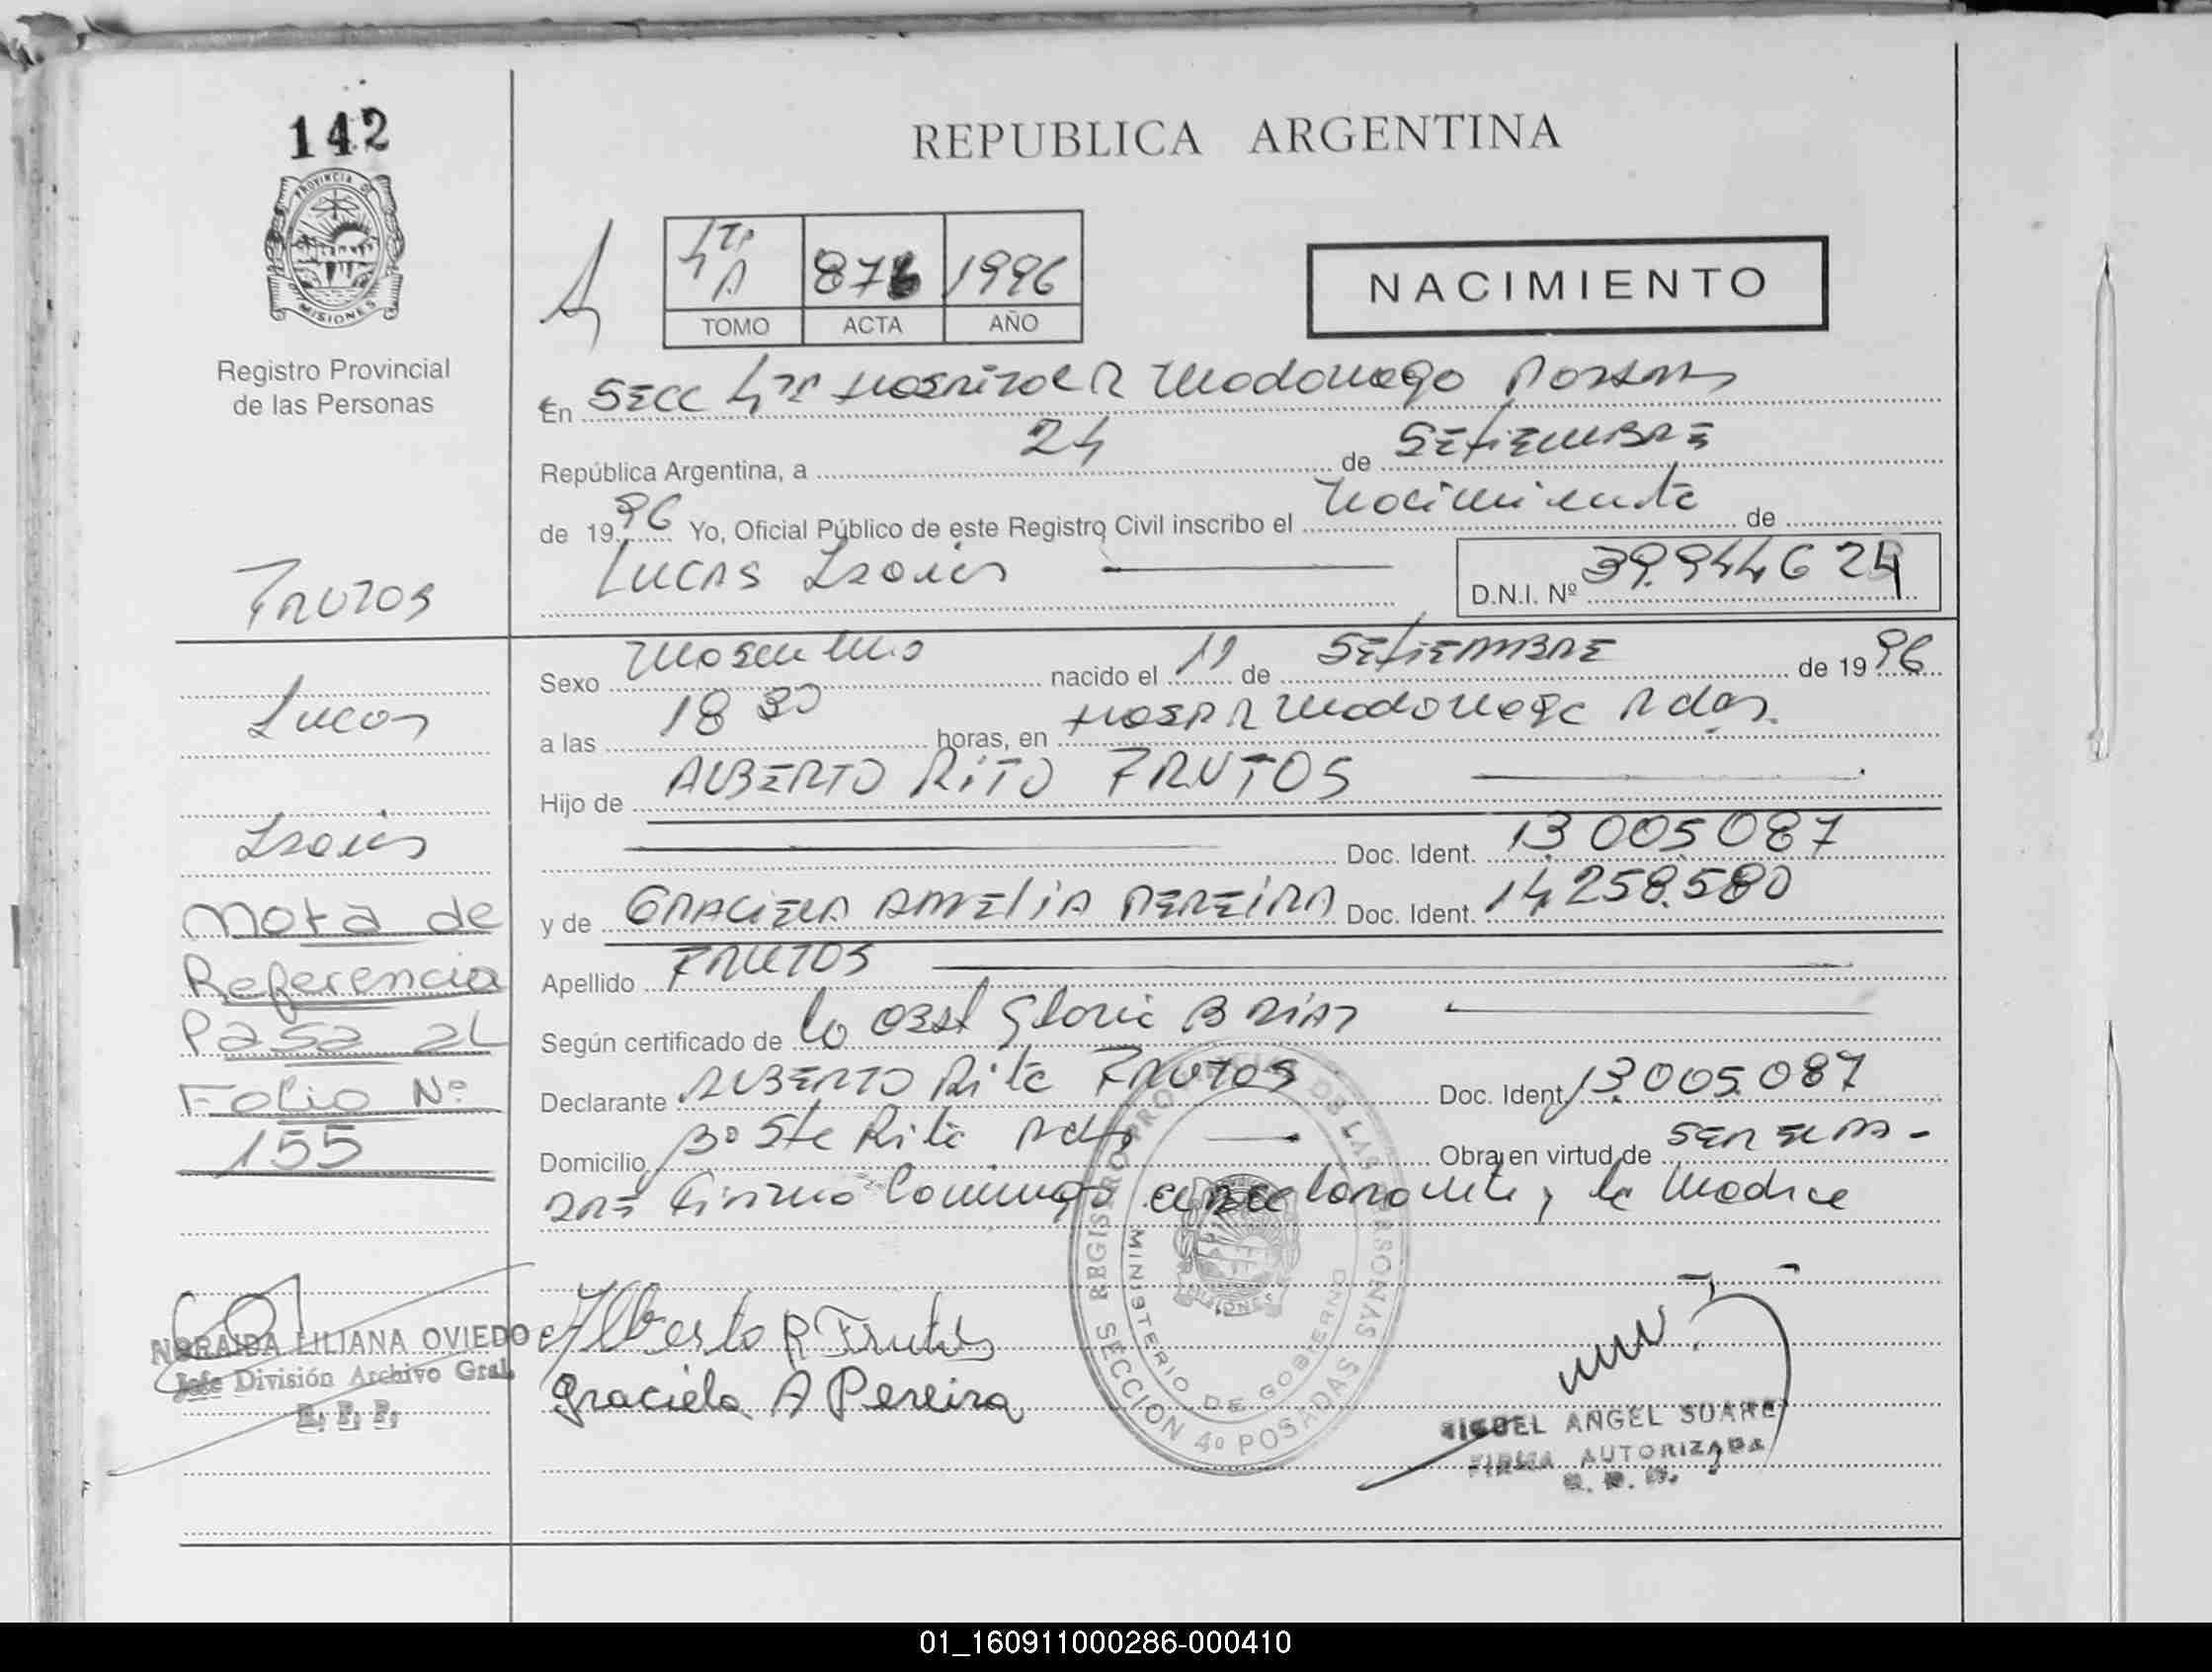 142
PROVINCIA DE
MISIONES
Registro Provincial
de las Personas
REPUBLICA ARGENTINA
4ta A 876 1996
TOMO ACTA AÑO
NACIMIENTO
En Secc 4ta Hospital R Madariaga Posadas
República Argentina, a 24 de Setiembre
de 1996 Yo, Oficial Público de este Registro Civil inscribo el nacimiento de
Lucas Isaias
D.N.I. Nº 39.944624
FRUTOS
Lucas
Isaias
Nota de
Referencia
Pasa al
Folio Nº
155
Sexo Masculino nacido el 11 de Setiembre de 1996
a las 18 30 horas, en Hosp R Madariaga Pdas.
Hijo de ALBERTO RITO FRUTOS
Doc. Ident. 13.005.087
y de GRACIELA AMELIA PEREIRA Doc. Ident. 14.258.580
Apellido FRUTOS
Según certificado de la Obst Gloria B Diaz
Declarante ALBERTO Rito FRUTOS Doc. Ident. 13.005.087
Domicilio Bº Sta Rita Pdas Obra en virtud de ser el pa-
dre firma conmigo el declarante y la madre
Alberto R Frutos
Graciela A Pereira
REGISTRO PROVINCIAL DE LAS PERSONAS
MINISTERIO DE GOBIERNO
MISIONES
SECCION 4º POSADAS
NORAIDA LILIANA OVIEDO
Jefe División Archivo Gral.
R. P. P.
MIGUEL ANGEL SUAREZ
FIRMA AUTORIZADA
01_160911000286-000410